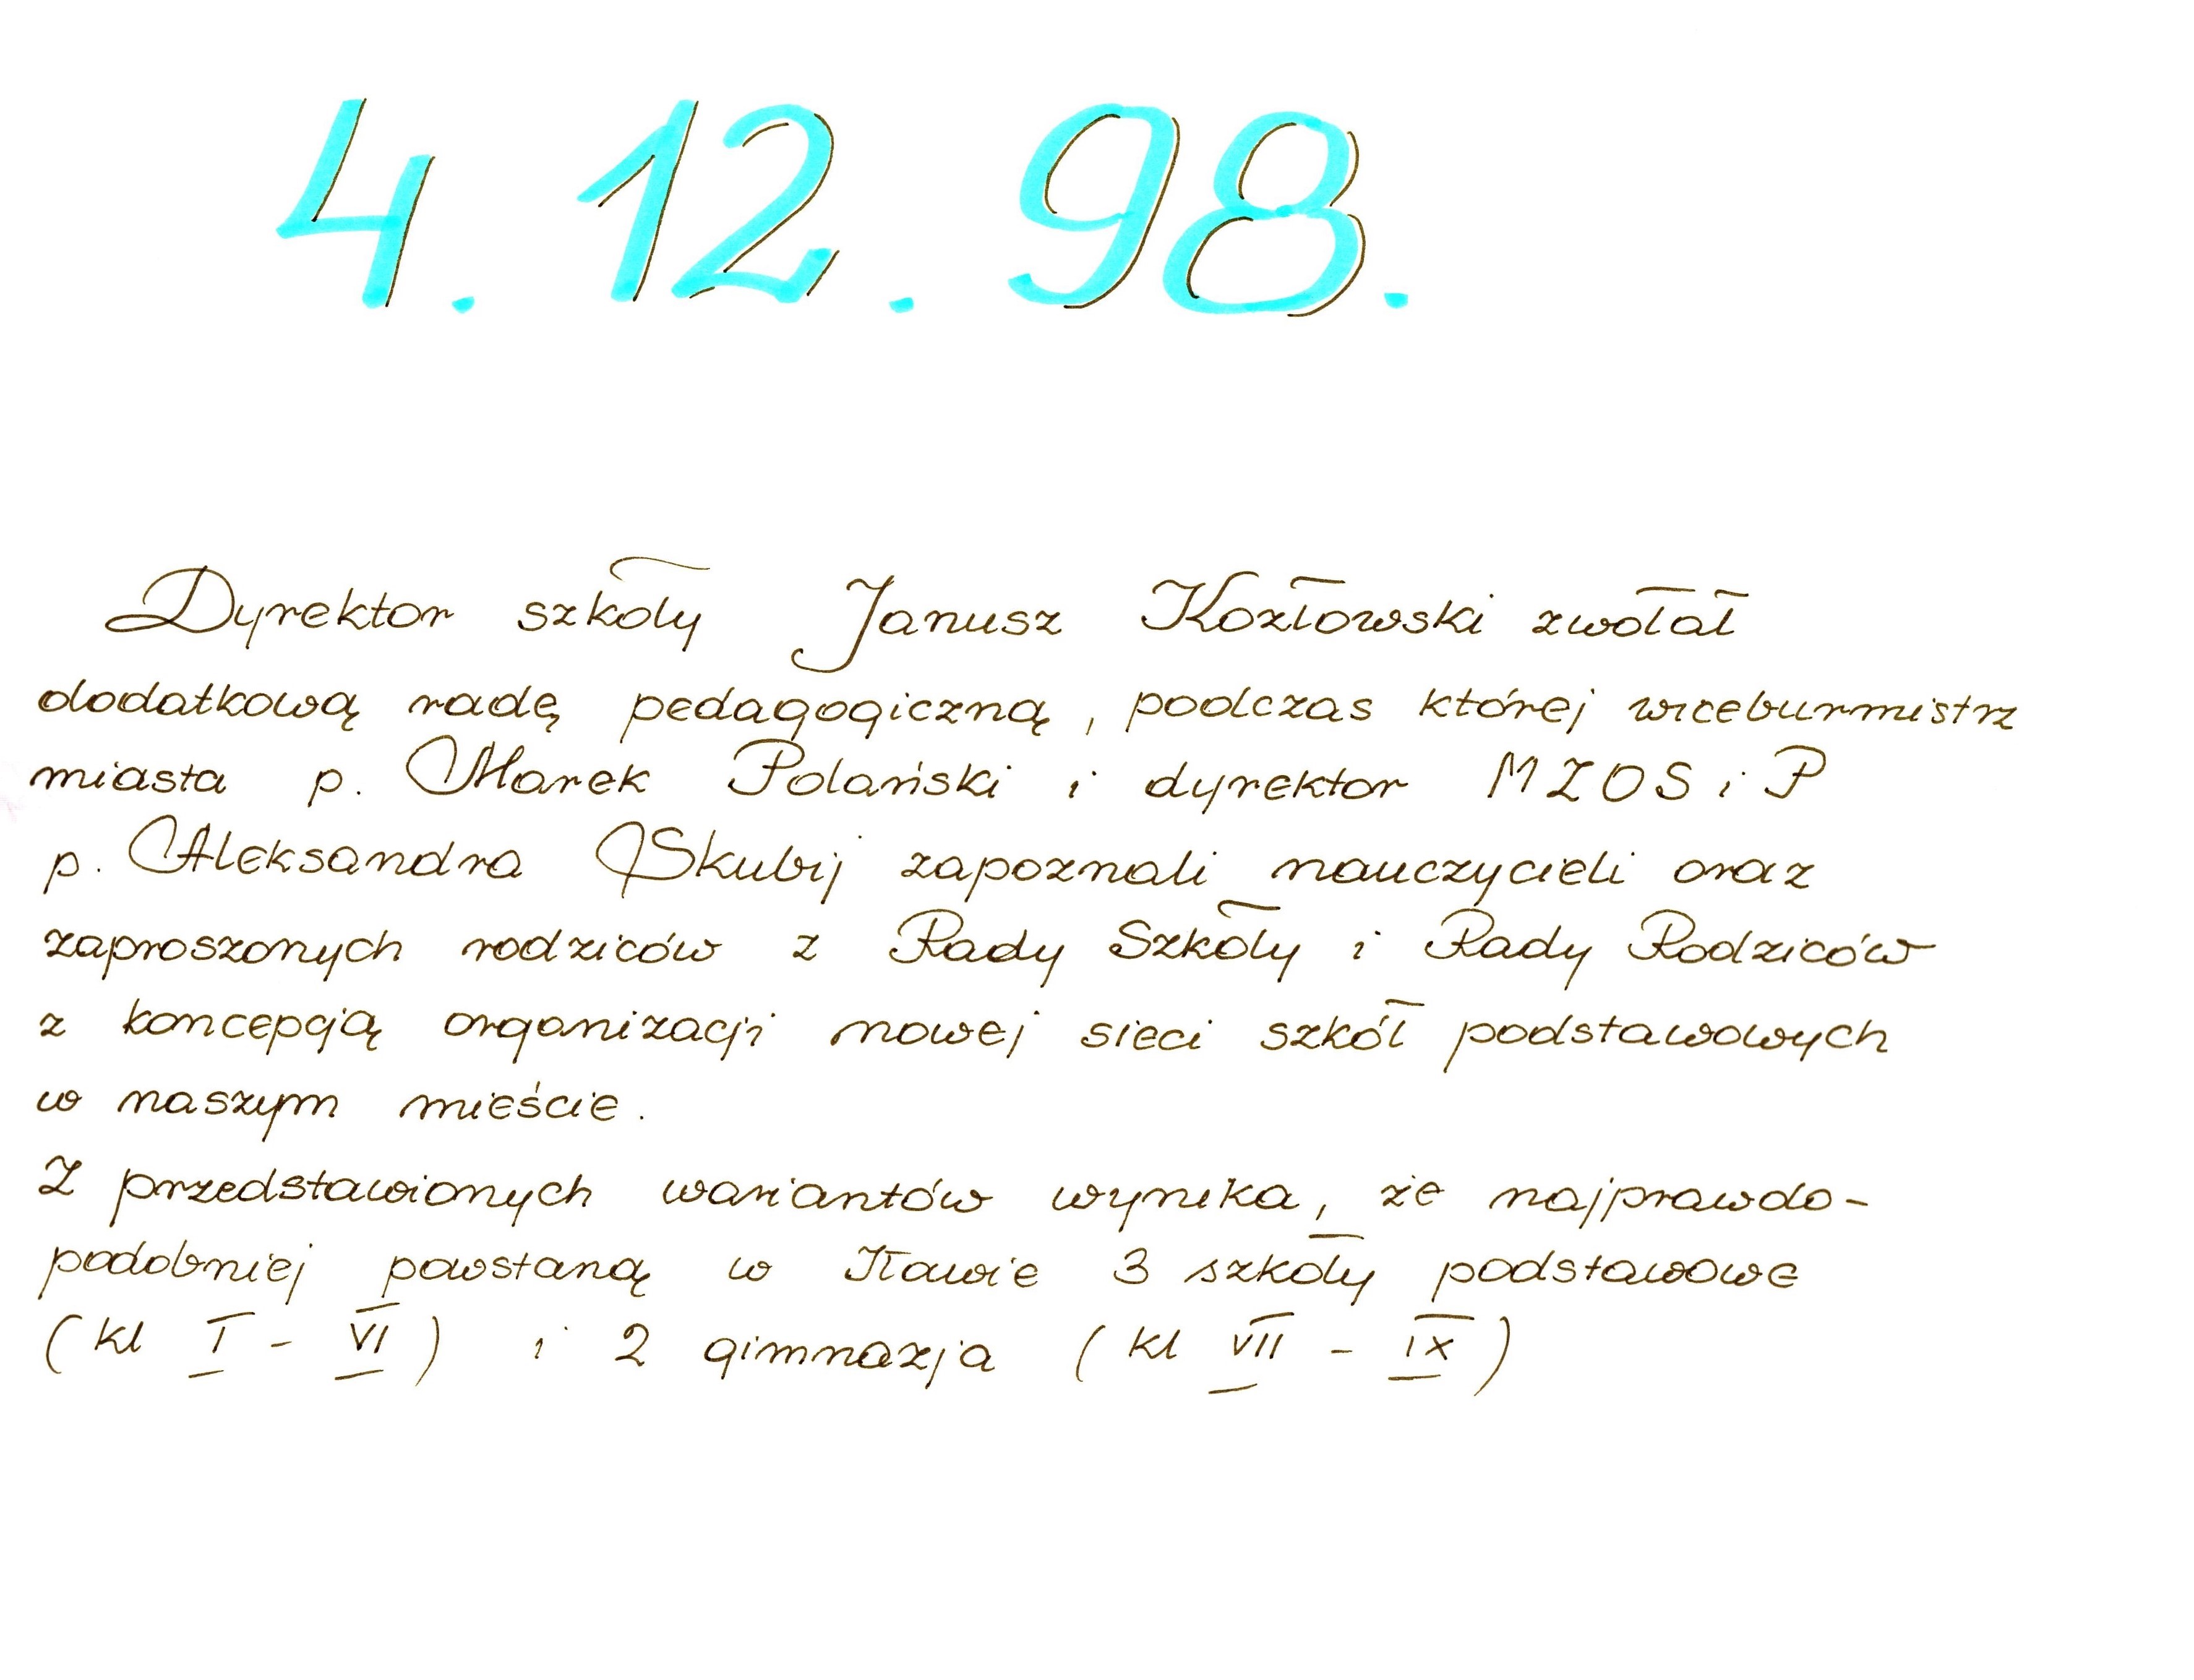 4. 12. 98.
Dyrektor szkoły Janusz Kozłowski zwołał
dodatkową radę pedagogiczną, podczas której wiceburmistrz
miasta p. Marek Polański i dyrektor MZOS i P
p. Aleksandra Skubij zapoznali nauczycieli oraz
zaproszonych rodziców z Rady Szkoły i Rady Rodziców
z koncepcją organizacji nowej sieci szkół podstawowych
w naszym mieście.
Z przedstawionych wariantów wynika, że najprawdo-
podobniej powstaną w Iławie 3 szkoły podstawowe
(kl I - VI) i 2 gimnazja (kl VII - IX)